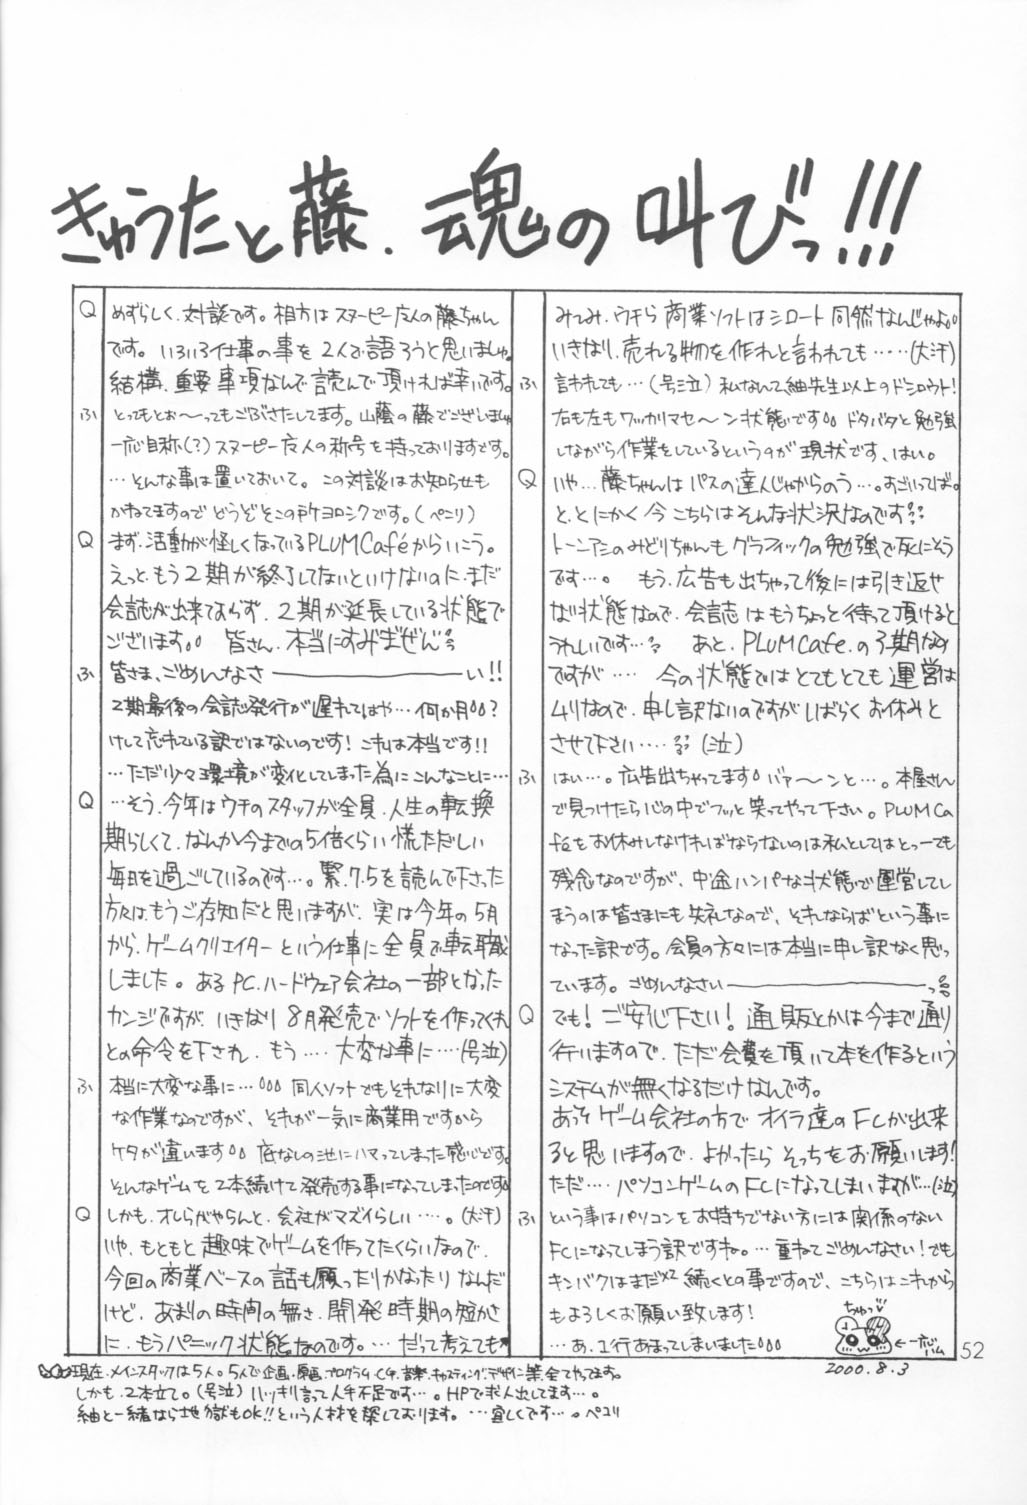 きゅうたと藤、魂の叫びっ!!!
Q
めずらしく、対談です。相方はスヌーピー友人の藤ちゃん
です。いろいろ仕事の事を2人で語ろうと思いましゅ。
結構、重要事項なんで読んで頂ければ幸いです。
ふ
とってもとお〜ってもごぶさたしてます。山蔭の藤でございましゅ
一応自称(?)スヌーピー友人の称号を持っておりますです。
…そんな事は置いておいて。この対談はお知らせも
かねてますのでどうぞそこの所ヨロシクです。(ペこり)
Q
まず、活動が怪しくなっているPLUMCaféからいこう。
えっと、もう2期が終了してないといけないのに、まだ
会誌が出来ておらず、2期が延長している状態で
ございます。皆さん、本当にすみまぜん
ふ
皆さま、ごめんなさ――――い!!
2期最後の会誌発行が遅れてはや…何か月?
けして忘れている訳ではないのです!これは本当です!!
…ただ少々環境が変化してしまった為にこんなことに…
Q
…そう、今年はウチのスタッフが全員、人生の転換
期らしくて、なんか今までの5倍くらい慌ただしい
毎日を過ごしているのです…。緊.7.5を読んで下さった
方々は、もうご存知だと思いますが、実は今年の5月
から、ゲームクリエイターという仕事に全員で転職
しました。あるPC.ハードウェア会社の一部となった
カンジですが、いきなり8月発売でソフトを作ってくれ
との命令を下され、もう‥‥大変な事に‥‥(号泣)
ふ
本当に大変な事に…同人ソフトでもそれなりに大変
な作業なのですが、それが一気に商業用ですから
ケタが違います 底なしの池にハマってしまった感じです。
そんなゲームを2本続けて発売する事になってしまったのです
Q
しかも、オレらがやらんと、会社がマズイらしい‥‥。(大汗)
いや、もともと趣味でゲームを作ってたくらいなので、
今回の商業ベースの話も願ったりかなったりなんだ
けど、あまりの時間の無さ、開発時期の短かさ
に、もうパニック状態なのです。…だって考えても
みてみ、ウチら商業ソフトはシロート同然なんじゃよ。
いきなり、売れる物を作れと言われても‥‥(大汗)
ふ
言われても…(号泣)私なんて紬先生以上のドシロウト!
右も左もワッカリマセ〜ン状態です ドタバタと勉強
しながら作業をしているというのが現状です、はい。
Q
いや…藤ちゃんはパスの達人じゃからのう…。すごいってば。
と、とにかく今こちらはそんな状況なのです
トーンアシのみどりちゃんもグラフィックの勉強で死にそう
です…。もう、広告も出ちゃって後には引き返せ
ない状態なので、会誌はもうちょっと待って頂けると
うれしいです… あと、PLUMCafe.の3期なの
ですが‥‥今の状態ではとてもとても運営は
ムリなので、申し訳ないのですがしばらくお休みと
させて下さい‥‥(泣)
ふ
はい…。広告出ちゃってます バァ〜ンと…。本屋さん
で見つけたら心の中でフッと笑ってやって下さい。PLUMCa
féもお休みしなければならないのは私としてはとっーても
残念なのですが、中途ハンパな状態で運営してし
まうのは皆さまにも失礼なので、それならばという事に
なった訳です。会員の方々には本当に申し訳なく思っ
ています。ごめんなさい――――っ
Q
でも!ご安心下さい!通販とかは今まで通り
行いますので、ただ会費を頂いて本を作るという
システムが無くなるだけなんです。
あっそゲーム会社の方でオイラ達のFCが出来
ると思いますので、よかったらそっちをお願いします!
ただ‥‥パソコンゲームのFCになってしまいますが…(泣)
ふ
という事はパソコンをお持ちでない方には関係のない
FCになってしまう訳ですね。…重ねてごめんなさい!でも
キンバクはまだまだ続くとの事ですので、こちらはこれから
もよろしくお願い致します!
…あ、1行あまってしまいました
ちゅっ
←一応ハム
2000.8.3
52
現在、メインスタッフは5人。5人で企画、原画、プログラム、CG、音楽、キャスティング、デザイン等、全てやってます。
しかも、2本立て。(号泣)ハッキリ言って人手不足です…。HPで求人出してます…。
紬と一緒なら地獄もOK!!という人材を探しております。…宜しくです…。ペコリ